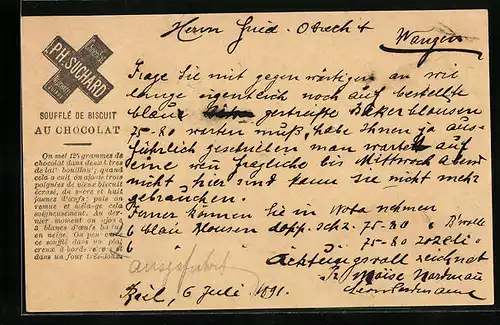 Herrn Fried. Obrecht
Wangen
PH. SUCHARD
SOUFFLÉ DE BISCUIT
AU CHOCOLAT
On met 125 grammes de
chocolat dans deux litres
de lait bouillant; quand
cela a cuit on ajoute trois
poignées de vieux biscuit
écrasé, du sucre et huit
jaunes d'œufs; puis on
remue et mélange cela
soigneusement. Au der-
nier moment on ajoute
8 blancs d'œufs battus
en neige. On peut cuire
ce soufflé dans un plat
creux à bords revêtus
dans un four très doux.
Frage Sie mit gegenwärtigem an wie
lange eigentlich noch auf bestellte
blau gestreifte Bäkerblousen
75-80 warten muß, habe Ihnen ja aus-
führlich geschrieben man wartet auf
eine wen fragliche bis Mittwoch Abend
nicht hier sind kann Sie nicht mehr
gebrauchen.
Ferner können Sie in Nota nehmen
6 blau Blousen dopp. sch. 75-80
6 " " " 75-80
Achtungsvoll zeichnet
Moïse Nordmann
ausgeführt
Biel, 6 Juli 1891.